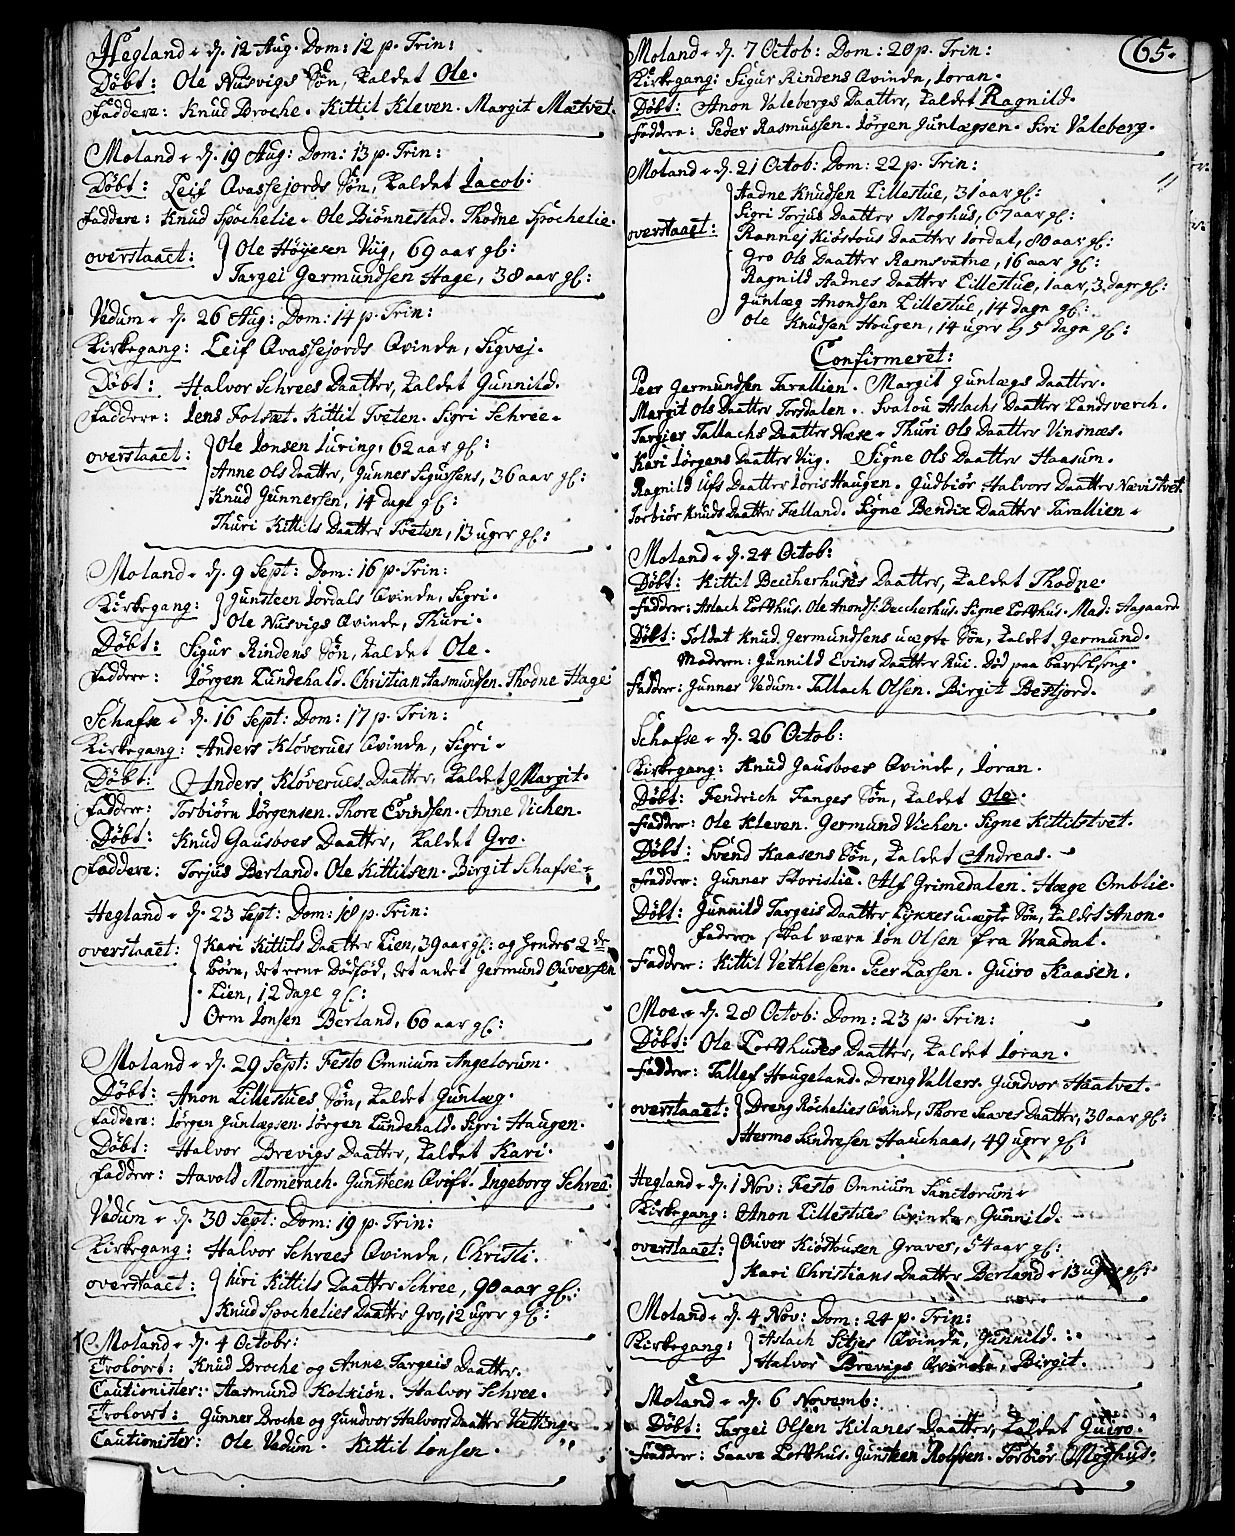 Hegland d. 12 Aug. Dom: 12 p. Trin:
Döbt: Ole Nusvigs Sön, kaldet Ole.
Faddere: Knud Broche. Kittil Kleven. Margit Mætvet.
Moland d. 19 Aug: Dom: 13 p. Trin:
Döbt: Leif Qvassefjords Sön, kaldet Jacob:
Faddere: Knud Spochelie. Ole Biönnestad. Thodne Spochelie.
overstaaet: Ole Höyesen Viig, 69 aar gl:
Targei Germundsen Hage, 38 aar gl:
Vedum d. 26 Aug: Dom: 14 p. Trin:
Kirkegang: Leif Qvassefjords Qvinde, Sigvej.
Döbt: Halvor Schrees Daatter, kaldet Gunnild.
Faddere: Jens Folsæt. Kittil Tveten. Sigri Schree.
overstaaet: Ole Jonsen Luring, 62 aar gl:
Anne Ols Daatter, Gunner Sigussens, 36 aar gl:
Knud Gunnersen, 14 dage gl:
Thuri Kittils Daatter Tveten, 13 uger gl:
Moland d. 9 Sept: Dom: 16 p. Trin:
Kirkegang: Gunsteen Jordals Qvinde, Sigri.
Ole Nusvigs Qvinde, Thuri.
Döbt: Sigur Rindens Sön, kaldet Ole.
Faddere: Jörgen Lundehald. Christian Aasmundsen. Thodne Hage.
Schafse d. 16 Sept: Dom: 17 p. Trin:
Kirkegang: Anders Klöverues Qvinde, Sigri.
Döbt: Anders Klöverues Daatter, kaldet Margit.
Faddere: Torbiörn Jörgensen. Thore Evindsen. Anne Vichen.
Döbt: Knud Gausboes Daatter, kaldet Gro.
Faddere: Torjus Berland. Ole Kittilsen. Birgit Schafse.
Hegland d. 23 Sept: Dom: 18 p. Trin:
overstaaet: Kari Kittils Daatter Lien, 39 aar gl: og hendes 2de
Börn, det eene Dödföd, det andet Germund Ouversen
Lien, 12 dage gl:
Orm Jonsen Berland, 60 aar gl:
Moland d. 29 Sept: Festo Omnium Angelorum.
Döbt: Anon Lillestues Sön, kaldet Gunlæg.
Faddere: Jörgen Gunlægsen. Jörgen Lundehald. Sigri Haugen.
Döbt: Halvor Brevigs Daatter, kaldet Kari.
Faddere: Aavold Momerach. Gunsteen Qvift. Ingeborg Schree.
Vedum d. 30 Sept: Dom: 19 p. Trin:
Kirkegang: Halvor Schrees Qvinde, Christi.
overstaaet: Turi Kittils Daatter Schree, 90 aar gl:
Knud Spochelies Daatter Gro, 12 uger gl:
Moland d. 4 Octobr:
Trolovt: Knud Broche og Anne Targeis Daatter.
Cautionister: Aasmund Kalkiön. Halvor Schree.
Trolovt: Gunner Broche og Gundvor Halvors Daatter
Cautionister: Ole Vedum. Kittil Jonsen.
65.
Moland d. 7 Octob: Dom: 20 p. Trin:
Kirkegang: Sigur Rindens Qvinde, Joran.
Döbt: Anon Valebergs Daatter, kaldet Ragnild.
Faddere: Peder Rasmussen. Jörgen Gunlægsen. Siri Valeberg.
Moland d. 21 Octob: Dom: 22 p. Trin:
overstaaet: Aadne Knudsen Lillestue, 31 aar gl:
Sigri Torjus Daatter Moghus, 67 aar gl:
Rannej Kiöstous Daatter Jordal, 80 aar gl:
Gro Ols Daatter Ramsvatne, 16 aar gl:
Ragnild Aadnes Daatter Lillestue, 1 aar, 3 dage gl:
Gunlæg Anondsen Lillestue, 14 dage gl:
Ole Knudsen Haugen, 14 uger og 5 dage gl:
Confirmeret:
Peer Germundsen Tarallien. Margit Gunlægs Daatter.
Margit Ols Daatter Torsdalen. Svalou Aslachs Daatter Landsverch.
Targier Tallachs Daatter Næse. Thuri Ols Daatter Vinsnæs.
Kari Jörgens Daatter Viig. Signe Ols Daatter Haasum.
Ragnild Ufs Daatter Joris Haugen. Gudbiör Halvors Daatter Nævistvet.
Torbiör Knuds Daatter Fælland. Signe Bendix Daatter Tarallien.
Moland d. 24 Octob:
Döbt: Kittil Beccherhuses Daatter, kaldet Thodne.
Faddere: Aslach Lofthus. Ole Anonds: Beccherhus. Signe Lofthus. Mad: Aagaard.
Döbt: Soldat Knud Germundsens uægte Sön, kaldet Germund.
Moderen: Gunnild Evins Daatter Rui. Död paa Barselseng.
Faddere: Gunner Vedum. Tallach Olsen. Birgit Bestjord.
Schafse d. 26 Octob:
Kirkegang: Knud Gausboes Qvinde, Joran.
Döbt: Fendrich Fanges Sön, kaldet Ole.
Faddere: Ole Kleven. Germund Vichen. Signe Kittilstvet.
Döbt: Svend Kaasens Sön, kaldet Andreas.
Faddere: Gunner Storislie. Alf Grimedalen. Hæge Omblie.
Döbt: Gunnild Targeis Daatter Lykkes uægte Sön, kaldet Anon.
Faderen skal være Jon Olsen fra Vraadal.
Faddere: Kittil Vethlesen. Peer Larsen. Guiro Kaasen.
Moe d. 28 Octob: Dom: 23 p. Trin:
Döbt: Ole Lofthuses Daatter, kaldet Joran.
Faddere: Tallef Haugeland. Dreng Vallers. Gundvor Haatvet.
overstaaet: Dreng Röchelies Qvinde, Thore Saaves Daatter, 30 aar gl:
Hermo Sundresen Hauchaas, 49 uger gl:
Hegland d. 1 Nov: Festo Omnium Sanctorum.
Kirkegang: Anon Lillestues Qvinde, Gunnild.
overstaaet: Ouver Kiöstousen Graver, 54 aar gl:
Kari Christians Daatter Berland, 13 uger gl:
Moland d. 4 Nov: Dom: 24 p. Trin:
Kirkegang: Aslach Sitjes Qvinde, Gunnild.
Halvor Brevigs Qvinde, Birgit.
Moland d. 6 Novemb:
Döbt: Targei Olsen Kilanes Daatter, kaldet Guiro.
Faddere: Saave Lofthus. Gunsteen Rolfsen. Torbiör Moghus.